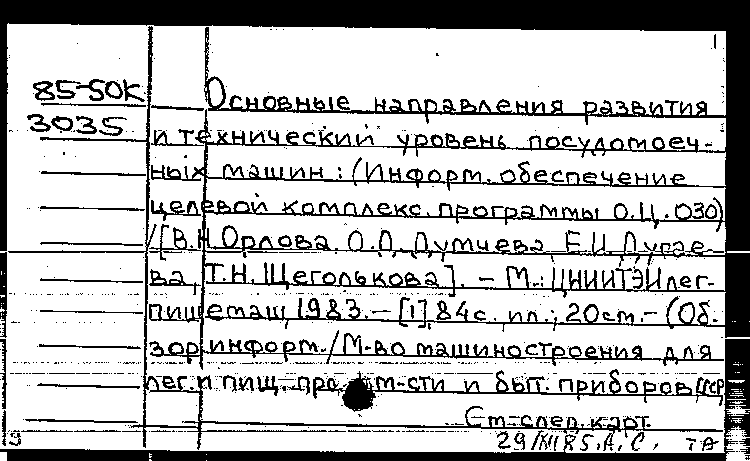 85-50К
3035
Основные направления развития
и технический уровень посудомоеч-
ных машин : (Информ. обеспечение
целевой комплекс. программы О.Ц.030)
/[В.Н.Орлова, О.П. Думчева, Е.И. Дугае-
ва, Т.Н. Щеголькова]. – М.: ЦНИИТЭИлег-
пищемаш, 1983. – [1], 84с. ил.; 20см. – (Об-
зор. информ. / М-во машиностроения для
лег. и пищ. пром-сти и быт. приборов СССР
См. след. карт.
29/XI 85. А.С. ТА